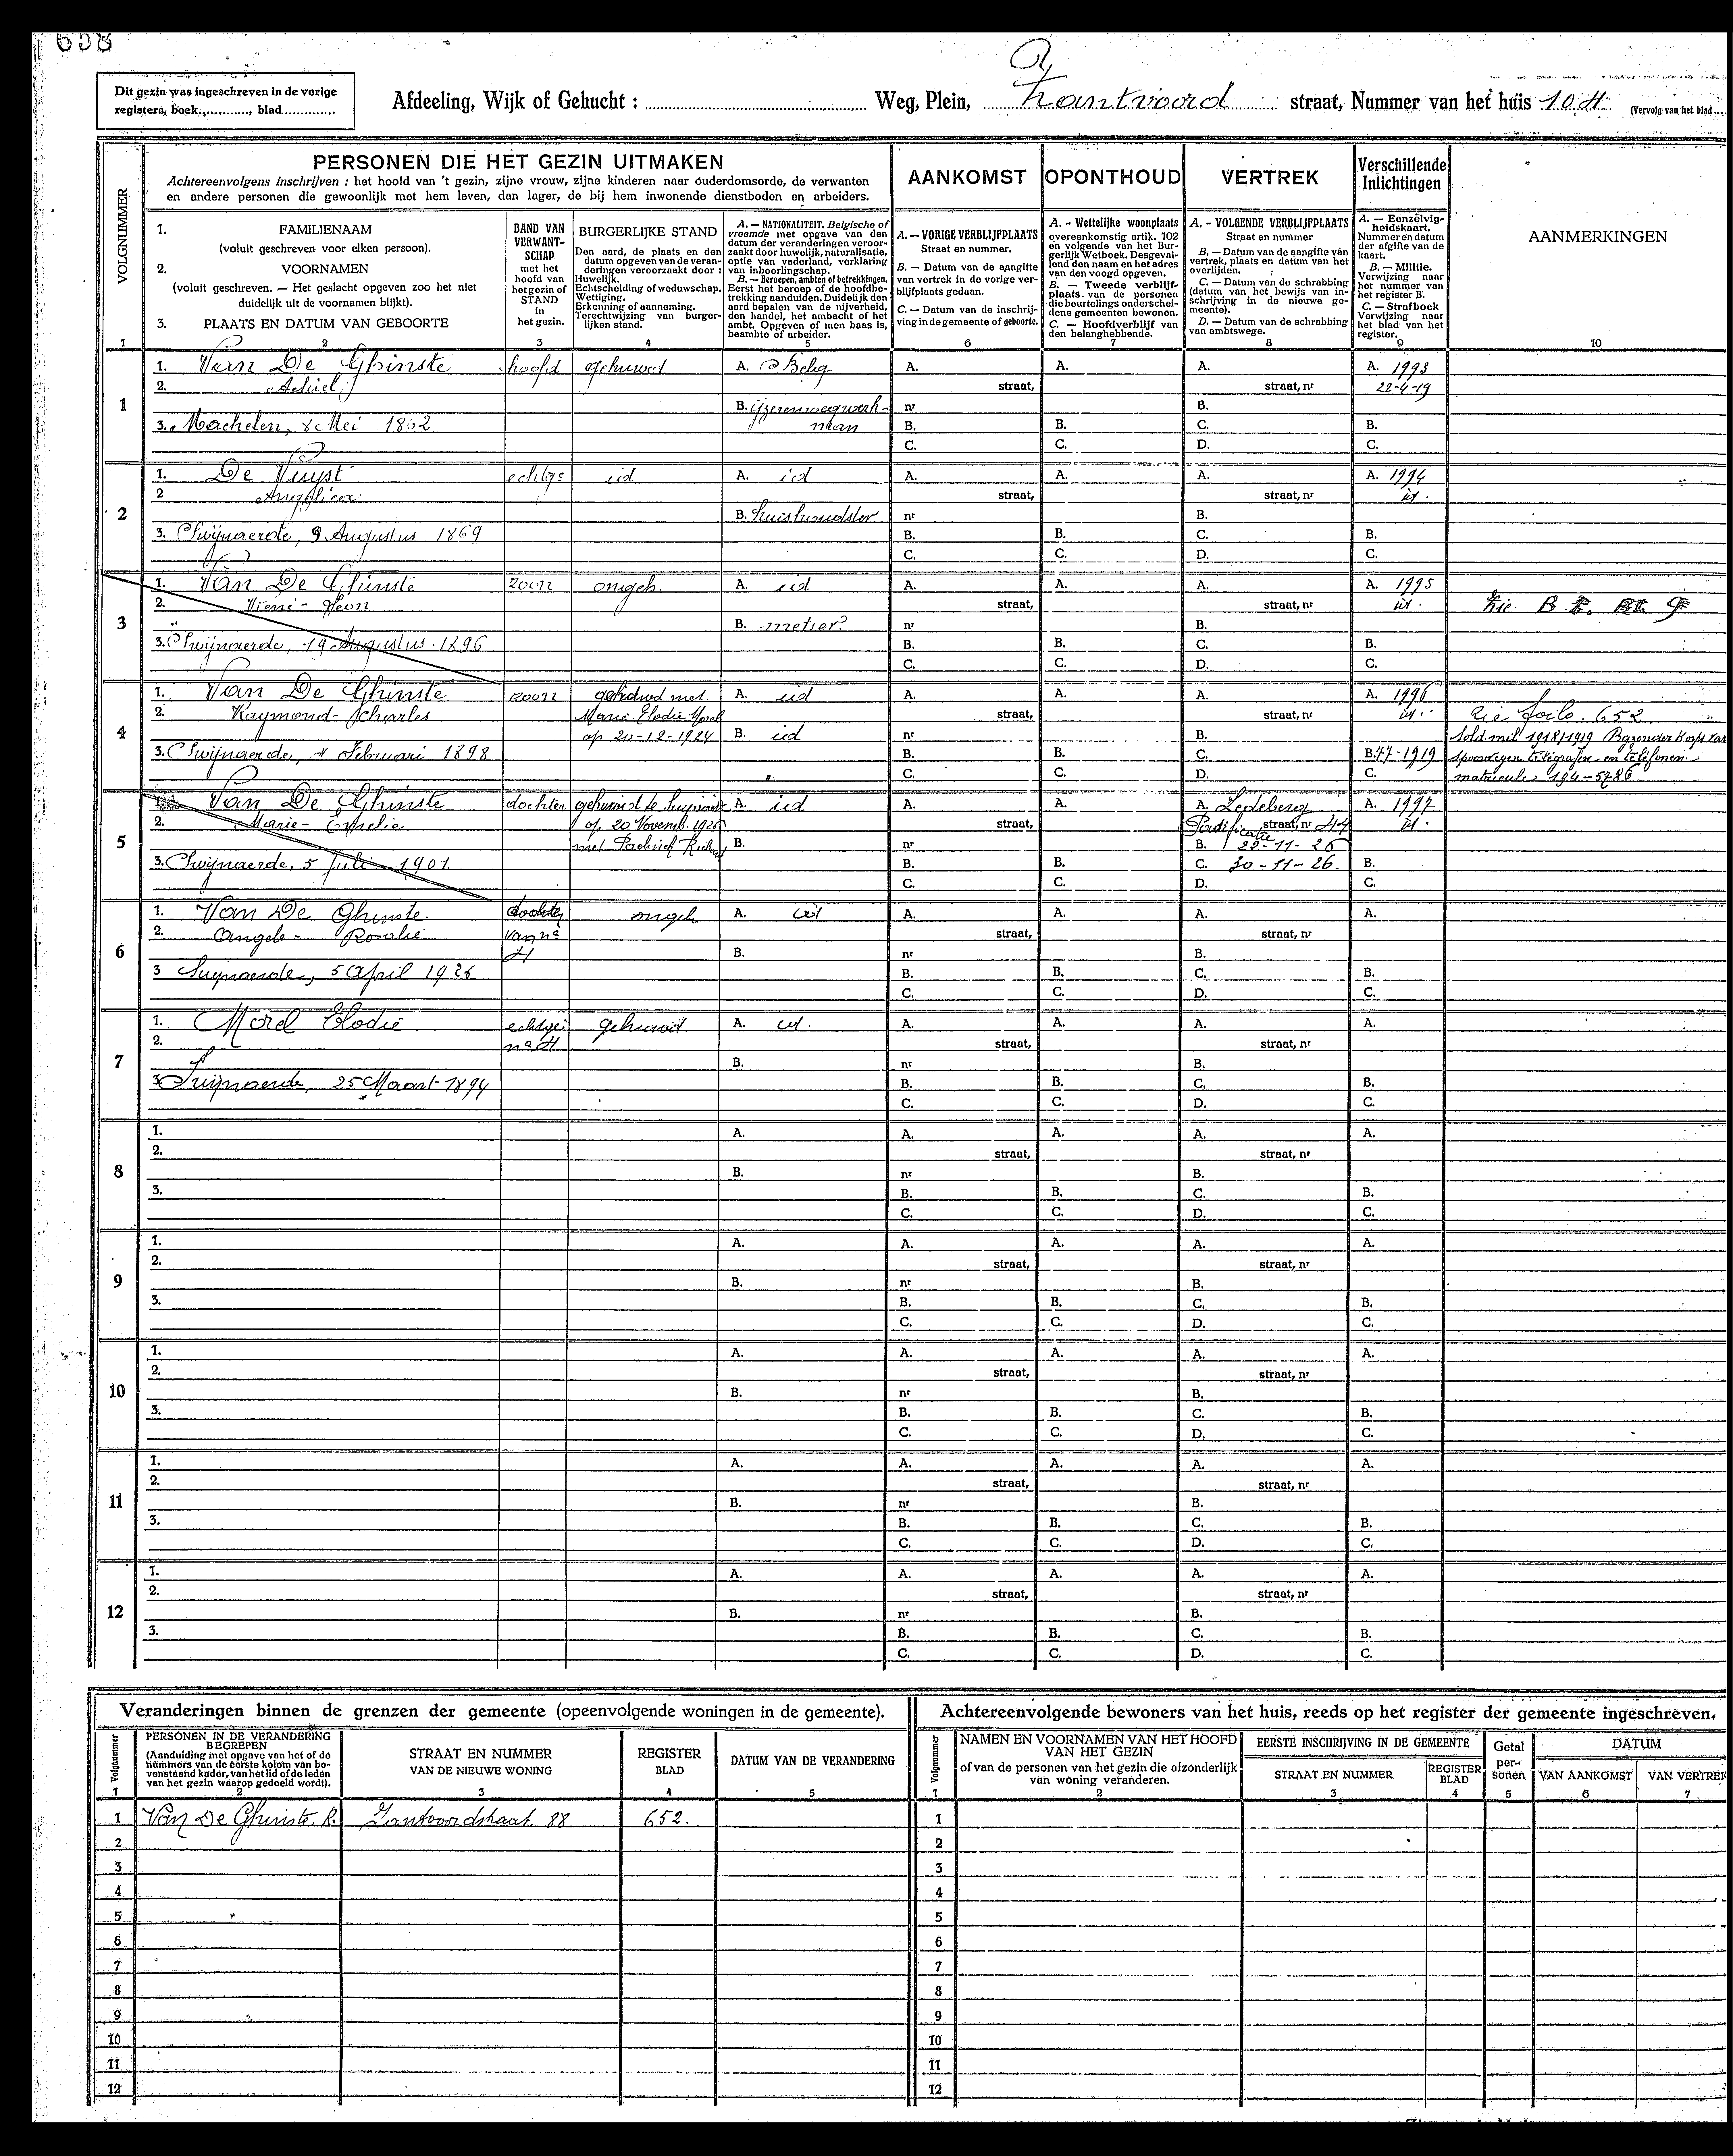 658
Dit gezin was ingeschreven in de vorige
registers, boek............, blad............
Afdeeling, Wijk of Gehucht : ............ Weg, Plein, Zantvoord straat, Nummer van het huis 104 (Vervolg van het blad....
PERSONEN DIE HET GEZIN UITMAKEN
Achtereenvolgens inschrijven : het hoofd van 't gezin, zijne vrouw, zijne kinderen naar ouderdomsorde, de verwanten
en andere personen die gewoonlijk met hem leven, dan lager, de bij hem inwonende dienstboden en arbeiders.
AANKOMST
OPONTHOUD
VERTREK
Verschillende
Inlichtingen
VOLGNUMMER
1
1. FAMILIENAAM
(voluit geschreven voor elken persoon).
2. VOORNAMEN
(voluit geschreven. — Het geslacht opgeven zoo het niet
duidelijk uit de voornamen blijkt).
3. PLAATS EN DATUM VAN GEBOORTE
2
BAND VAN
VERWANT-
SCHAP
met het
hoofd van
het gezin of
STAND
in
het gezin.
3
BURGERLIJKE STAND
Den aard, de plaats en den
datum opgeven van de veran-
deringen veroorzaakt door :
Huwelijk.
Echtscheiding of weduwschap.
Wettiging.
Erkenning of aanneming.
Terechtwijzing van burger-
lijken stand.
4
A. — NATIONALITEIT, Belgische of
vreemde met opgave van den
datum der veranderingen veroor-
zaakt door huwelijk, naturalisatie,
optie van vaderland, verklaring
van inboorlingschap.
B. — Beroepen, ambten of betrekkingen.
Eerst het beroep of de hoofdbe-
trekking aanduiden. Duidelijk den
aard bepalen van de nijverheid,
den handel, het ambacht of het
ambt. Opgeven of men baas is,
beambte of arbeider.
5
A. — VORIGE VERBLIJFPLAATS
Straat en nummer.
B. — Datum van de aangifte
van vertrek in de vorige ver-
blijfplaats gedaan.
C. — Datum van de inschrij-
ving in de gemeente of geboorte.
6
A. - Wettelijke woonplaats
overeenkomstig artik, 102
en volgende van het Bur-
gerlijk Wetboek. Desgeval-
lend den naam en het adres
van den voogd opgeven.
B. — Tweede verblijf-
plaats van de personen
die beurtelings onderschei-
dene gemeenten bewonen.
C. — Hoofdverblijf van
den belanghebbende.
7
A. - VOLGENDE VERBLIJFPLAATS
Straat en nummer
B. — Datum van de aangifte van
vertrek, plaats en datum van het
overlijden.
C. — Datum van de schrabbing
(datum van het bewijs van in-
schrijving in de nieuwe ge-
meente).
D. — Datum van de schrabbing
van ambtswege.
8
A. — Eenzelvig-
heidskaart.
Nummer en datum
der afgifte van de
kaart.
B. — Militie.
Verwijzing naar
het nummer van
het register B.
C. — Strafboek
Verwijzing naar
het blad van het
register.
9
AANMERKINGEN
10
1
1. Van De Ghinste hoofd gehuwd A. Belg A. A. A. A. 1993
2. Achiel straat, straat, nr 22-4-19
B. ijzerenwegwerk- nr B.
3. Machelen, 8 Mei 1862 man B. B. C. B.
C. C. D. C.
2
1. De Vuyst echtge id A. id A. A. A. A. 1994
2 Angelica straat, straat, nr id.
B. huishoudster nr B.
3. Swijnaerde, 9 Augustus 1869 B. B. C. B.
C. C. D. C.
3
1. Van De Ghinste zoon ongeh. A. id A. A. A. A. 1995
2. René - Leon straat, straat, nr id. zie B.
B. metser nr B.
3. Swijnaerde, 19 Augustus 1896 B. B. C. B.
C. C. D. C.
4
1. Van De Ghinste zoon gehuwd met A. id A. A. A. A. 1996
2. Raymond - Charles Marie Elodie Morel straat, straat, nr id. Zie foilo 652
op 20-12-1924 B. id nr B. Sold. mil 1918/1919 Bijzonder Korps van
3. Swijnaerde, 4 Februari 1898 B. B. C. B. 77-1919 spoorwegen telegrafen en telefonen
C. C. D. C. matricule 194-5786
5
1. Van De Ghinste dochter gehuwd te Swijnaerde A. id A. A. A. Ledeberg A. 1997
2. Marie - Emelie op 20 Novemb. 1926 straat, straat, nr 44 id.
met Richard B. nr B. 22-11-26
3. Swijnaerde, 5 Juli 1901 B. B. C. 30-11-26. B.
C. C. D. C.
6
1. Van De Ghinste dochter ongeh. A. id A. A. A. A.
2. Angele - Rosalie van nr straat, straat, nr
4 B. nr B.
3 Swijnaerde, 5 April 1926 B. B. C. B.
C. C. D. C.
7
1. Morel Elodie echtge gehuwd A. id. A. A. A. A.
2. nr 4 straat, straat, nr
B. nr B.
3. Swijnaerde, 25 Maart 1894 B. B. C. B.
C. C. D. C.
8
1. A. A. A. A. A.
2. straat, straat, nr
B. nr B.
3. B. B. C. B.
C. C. D. C.
9
1. A. A. A. A. A.
2. straat, straat, nr
B. nr B.
3. B. B. C. B.
C. C. D. C.
10
1. A. A. A. A. A.
2. straat, straat, nr
B. nr B.
3. B. B. C. B.
C. C. D. C.
11
1. A. A. A. A. A.
2. straat, straat, nr
B. nr B.
3. B. B. C. B.
C. C. D. C.
12
1. A. A. A. A. A.
2. straat, straat, nr
B. nr B.
3. B. B. C. B.
C. C. D. C.
Veranderingen binnen de grenzen der gemeente (opeenvolgende woningen in de gemeente).
Volgnummer
1
PERSONEN IN DE VERANDERING
BEGREPEN
(Aanduiding met opgave van het of de
nummers van de eerste kolom van bo-
venstaand kader, van het lid of de leden
van het gezin waarop gedoeld wordt).
2
STRAAT EN NUMMER
VAN DE NIEUWE WONING
3
REGISTER
BLAD
4
DATUM VAN DE VERANDERING
5
1 Van De Ghinste R. Zantvoordstraat 88 652.
2
3
4
5
6
7
8
9
10
11
12
Achtereenvolgende bewoners van het huis, reeds op het register der gemeente ingeschreven.
Volgnummer
1
NAMEN EN VOORNAMEN VAN HET HOOFD
VAN HET GEZIN
of van de personen van het gezin die afzonderlijk
van woning veranderen.
2
EERSTE INSCHRIJVING IN DE GEMEENTE
STRAAT EN NUMMER
3
REGISTER
BLAD
4
Getal
per-
sonen
5
DATUM
VAN AANKOMST
6
VAN VERTREK
7
1
2
3
4
5
6
7
8
9
10
11
12